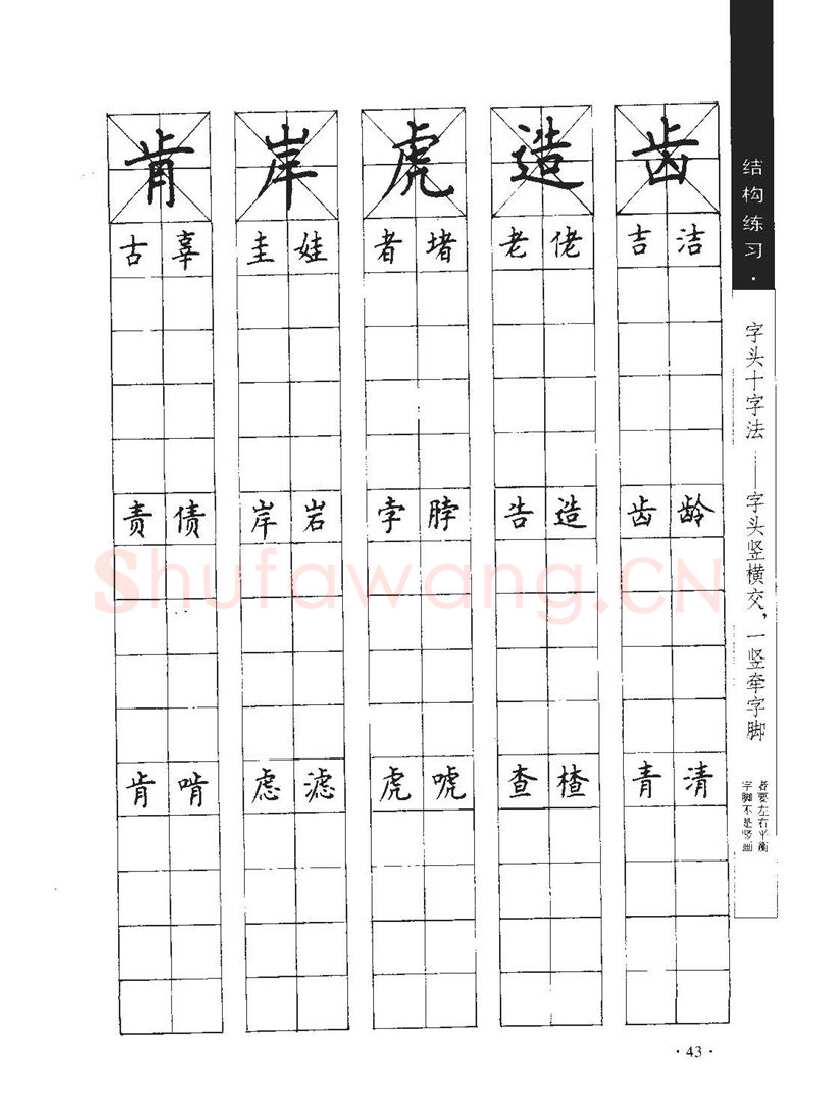 结构练习·
字头十字法——字头竖横交，一竖牵字脚
字脚不是竖画
都要左右平衡
肯 岸 虎 造 齿
古 辜 圭 娃 者 堵 老 佬 吉 洁
责 债 岸 岩 孛 脖 告 造 齿 龄
肯 啃 虑 滤 虎 唬 查 楂 青 清
Shufawang.CN
·43·